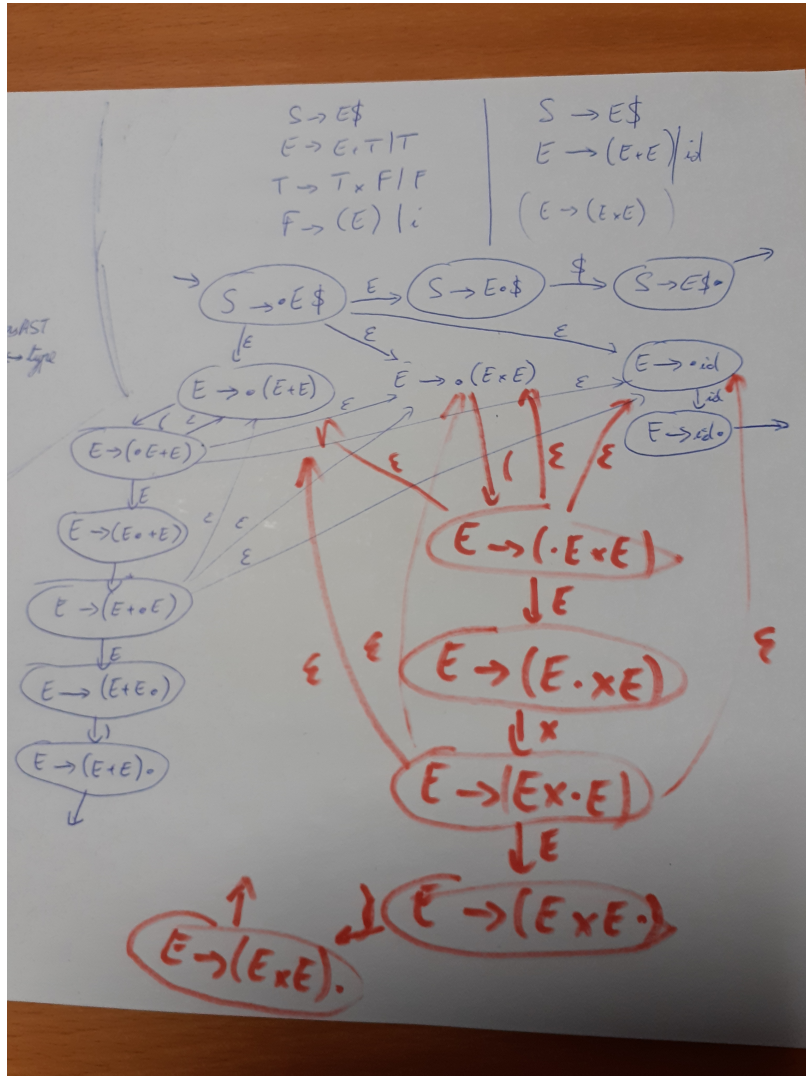 S → E$
E → E+T|T
T → T×F|F
F → (E)|i
S → E$
E → (E+E)|id
(E → (E×E))
AST
→ type
S → •E$
E
S → E•$
$
S → E$•
ε
ε
ε
E → •(E+E)
E → •(E×E)
E → •id
(
ε
ε
ε
id
E → (•E+E)
E → id•
E
ε
(
ε
ε
E → (E•+E)
ε
ε
ε
E → (•E×E)
+
E
E → (E+•E)
E
E → (E•×E)
ε
ε
ε
E → (E+E•)
×
)
E → (E×•E)
E → (E+E)•
E
E → (E×E•)
)
E → (E×E)•